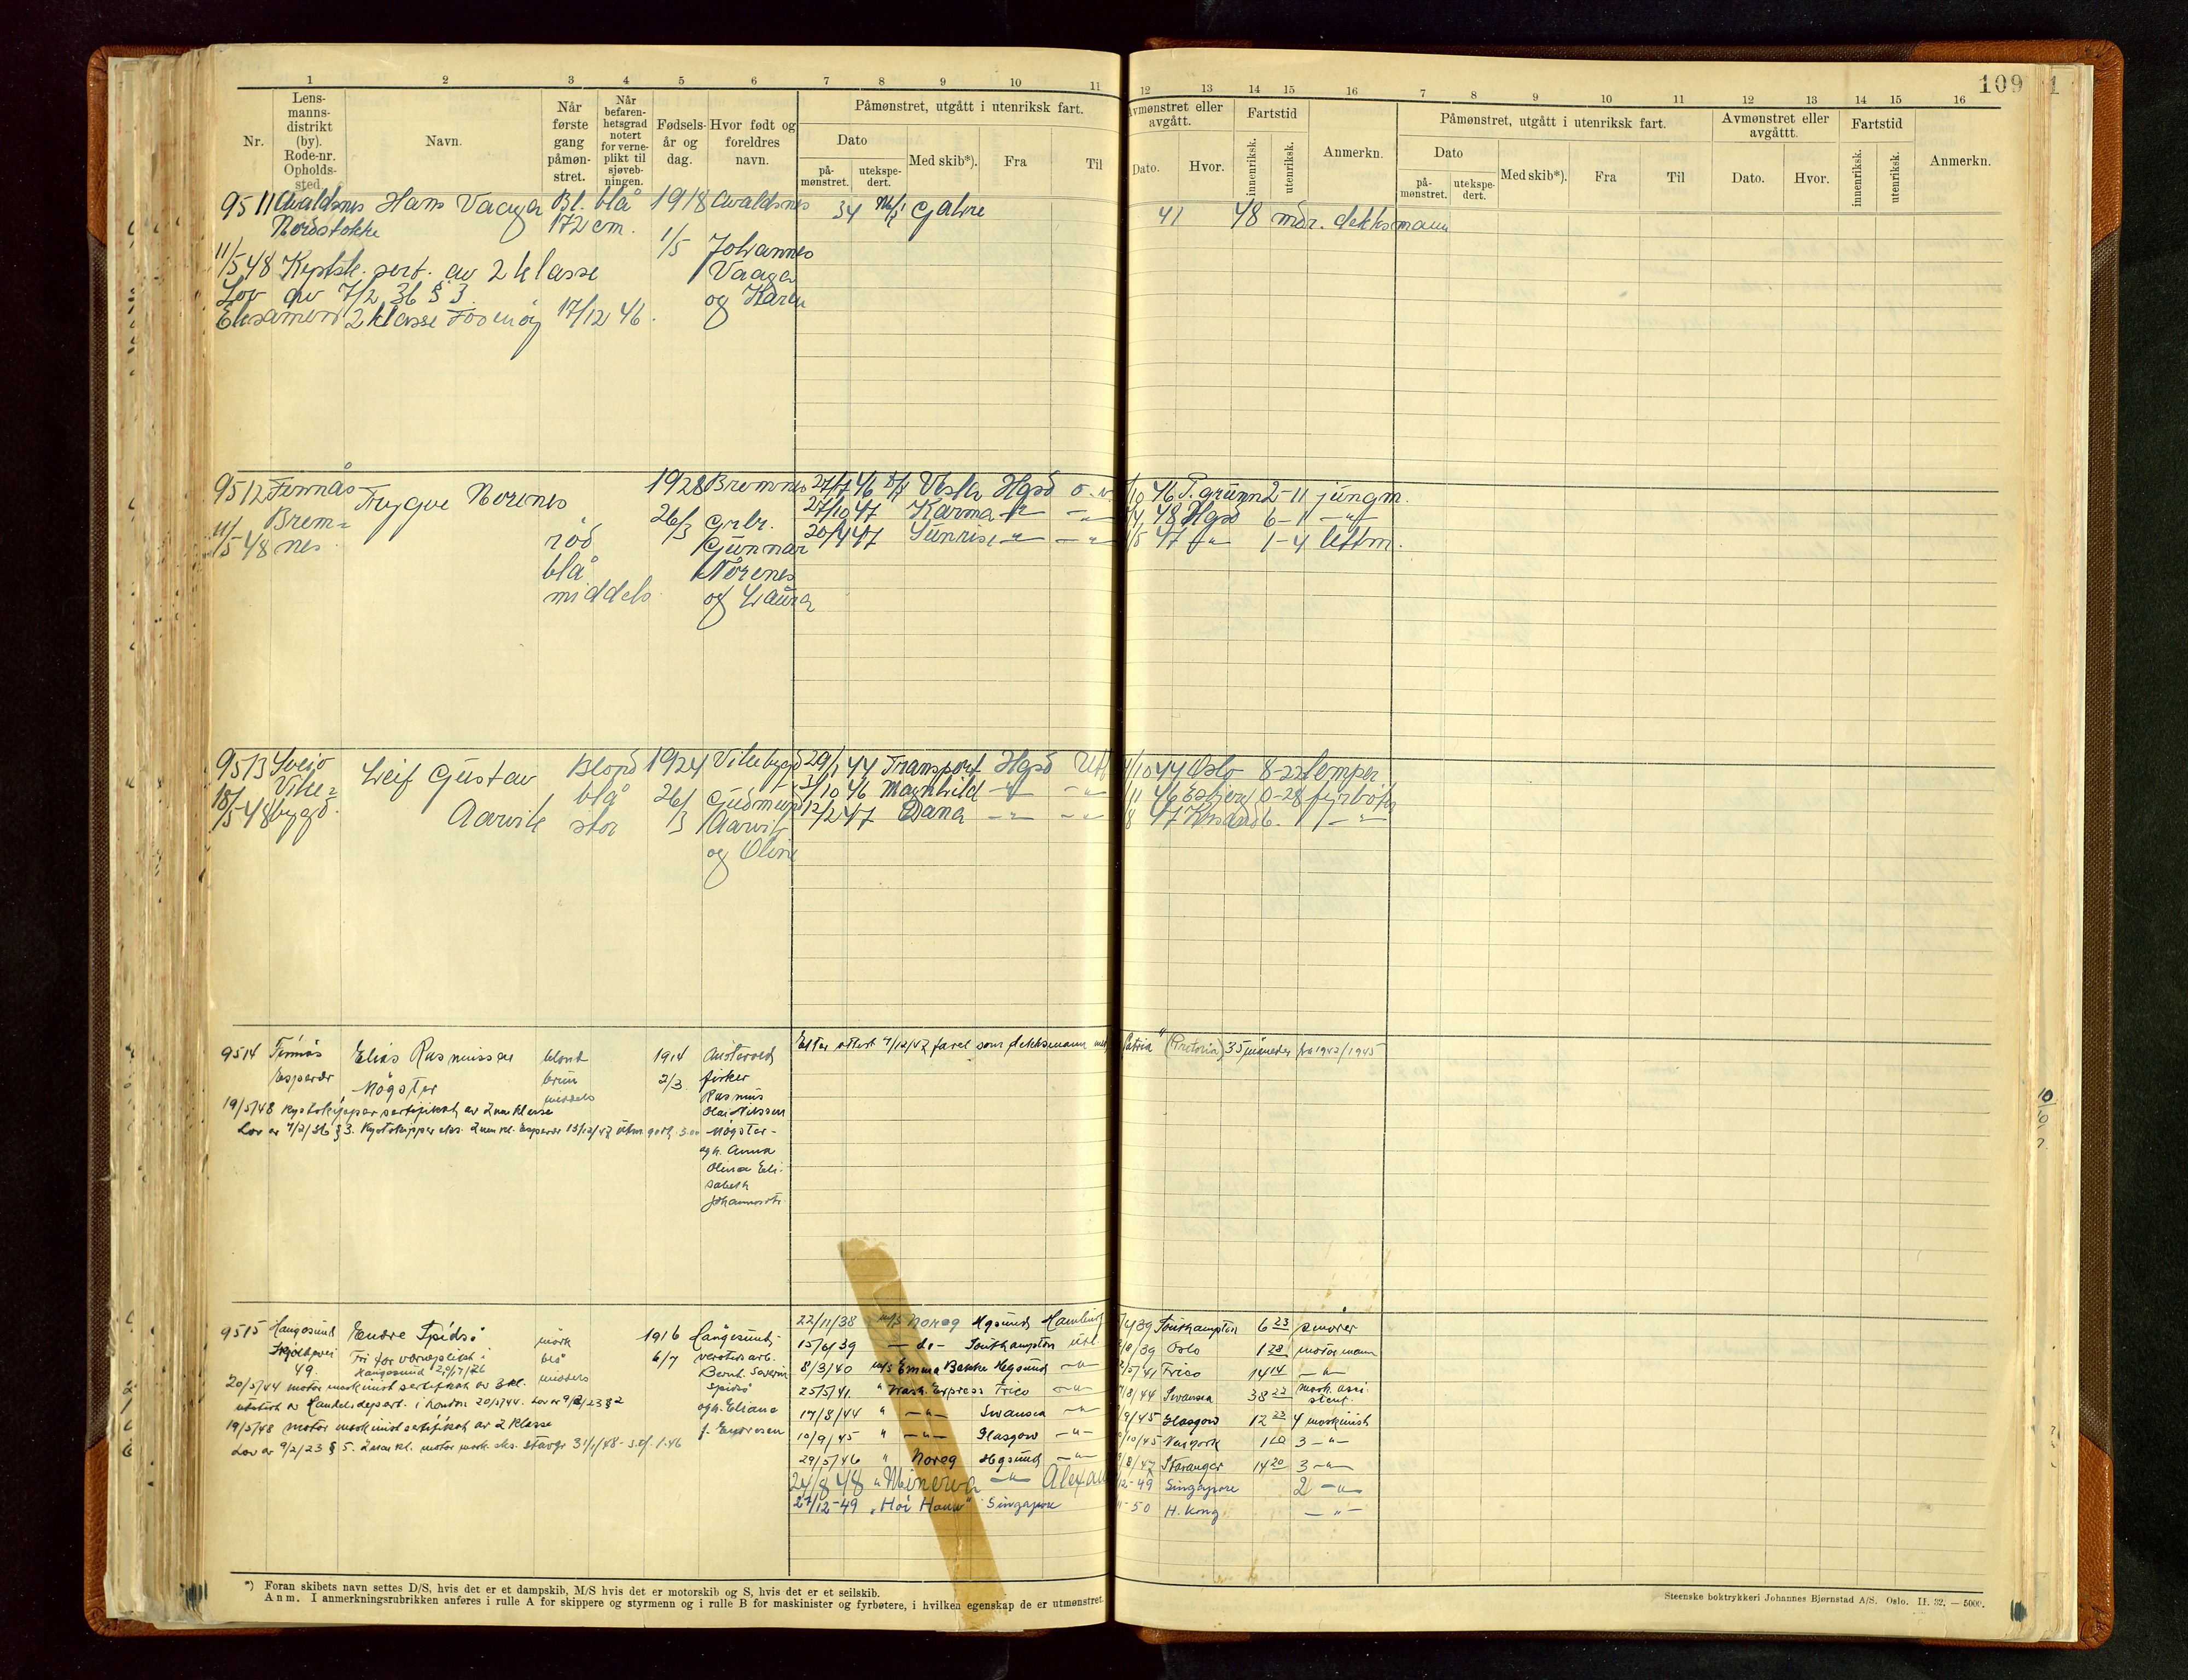 109
1 2 3 4 5 6 7 8 9 10 11 12 13 14 15 16 7 8 9 10 11 12 13 14 15 16
Nr.
Lens-
manns-
distrikt
(by).
Rode-nr.
Opholds-
sted.
Navn.
Når
første
gang
påmøn-
stret.
Når
befaren-
hetsgrad
notert
for verne-
plikt til
sjøveb-
ningen.
Fødsels-
år og
dag.
Hvor født og
foreldres
navn.
Påmønstret, utgått i utenriksk fart.
Dato
på-
mønstret.
utekspe-
dert.
Med skib*).
Fra
Til
Avmønstret eller
avgått.
Dato.
Hvor.
Fartstid
innenriksk.
utenriksk.
Anmerkn.
Påmønstret, utgått i utenriksk fart.
Dato
på-
mønstret.
utekspe-
dert.
Med skib*).
Fra
Til
Avmønstret eller
avgåttt.
Dato.
Hvor.
Fartstid
innenriksk.
utenriksk.
Anmerkn.
9511 Avaldsnes Hans Vaaga Bl. blå 1918 Avaldsnes 34 Galve 41 48 mdr. dekksmann
Nordstokke 172 cm. 1/5 Johannes
11/5 48 Kystsk. sert. av 2 klasse Vaaga
Lov av 7/2 36 § 3. og Karen
Eksamen 2 klasse 17/12 46.
9512 Finnås Trygve Norenes 1928 Bremnes 27/7 46 Vestla Hgsd 46 P. grunn 2-11 jungm.
Brem= 26/3 Grbr. 27/10 47 Karma -"- -"- 48 Hgsd 6-1 -"-
11/5 48 nes rød Gunnar 20/4 47 Sunrise -"- -"- 47 -"- 1-4 lettm.
blå Norenes
middels og Laura
9513 Sveio Leif Gustav Blond 1924 Vikebygd 29/1 44 Transport Hgsd Utl 44 Oslo 8-22 lemper
Vike= blå 26/3 Gudmund 3/10 46 Magnhild -"- -"- 46 Esbjerg 0-28 fyrbøter
18/5 48 bygd. Aarvik stor Aarvik 12/2 47 Dana -"- -"- 47 -"-
og Oline
9514 Finnås Elias Rasmussen blond 1914 Austevold Etter attest 7/12/47 faret som dekksmann med "Patria" (Pretoria) 35 måneder fra 1942/1945
Espevær Møgster brun 2/3 fisker
middels Rasmus
19/5/48 kystskippersertifikat av 2nen klasse Olai Nilssen
Lov av 7/2/36 § 3. Kystskipper eks. 2nen kl. Espevær 13/12/47 Møgster
og h. Anna
Olina Eli-
sabeth
Johannesdtr.
9515 Haugesund Endre Spidsø mørk 1916 Haugesund 22/11/38 M/S Noreg Hgsund Hamburg 39 Southampton 6 23 smører
Skjoldavei blå 6/7 verstedsarb. 15/6/39 - do - Southampton utl 39 Oslo 1 28 motormann
49. Fri for værneplikt i middels Bernt Severin 8/3/40 M/S Emma Bakke Hgsund -"- 41 Frico 14 14 -"-
Haugesund 29/7/26 Spidsø 25/5/41. " Wash. Express Frico -"- 44 Swansea 38 22 mask. assi-
stent.
20/5/44 motormaskinist sertifikat av 3 kl. og h. Eliana 17/8/44 " -"- Swansea -"- 45 Glasgow 12 23 4 maskinist
utstedt av Handelsdepart. i London 20/5/44. Lov av 9/2/23 § 2 f. Endresen 10/9/45 " -"- Glasgow -"- 45 3 -"-
19/5/48 motor maskinistsertifikat av 2 klasse 29/5/46 " Noreg Hgsund -"- 47 Stavanger 14 20 3 -"-
Lov av 9/2/23 § 5. 2nen kl. motor mask. eks. Stavgr 31/1/48 24/8 48 "Minerva -"- 49 Singapore 2 -"-
27/12-49 "Hoi Houw" Singapore 50 H. Kong -"-
*) Foran skibets navn settes D/S, hvis det er et dampskib, M/S hvis det er motorskib og S, hvis det er et seilskib.
Anm. I anmerkningsrubrikken anføres i rulle A for skippere og styrmenn og i rulle B for maskinister og fyrbøtere, i hvilken egenskap de er utmønstret.
Steenske boktrykkeri Johannes Bjørnstad A/S. Oslo. II. 32. — 5000.